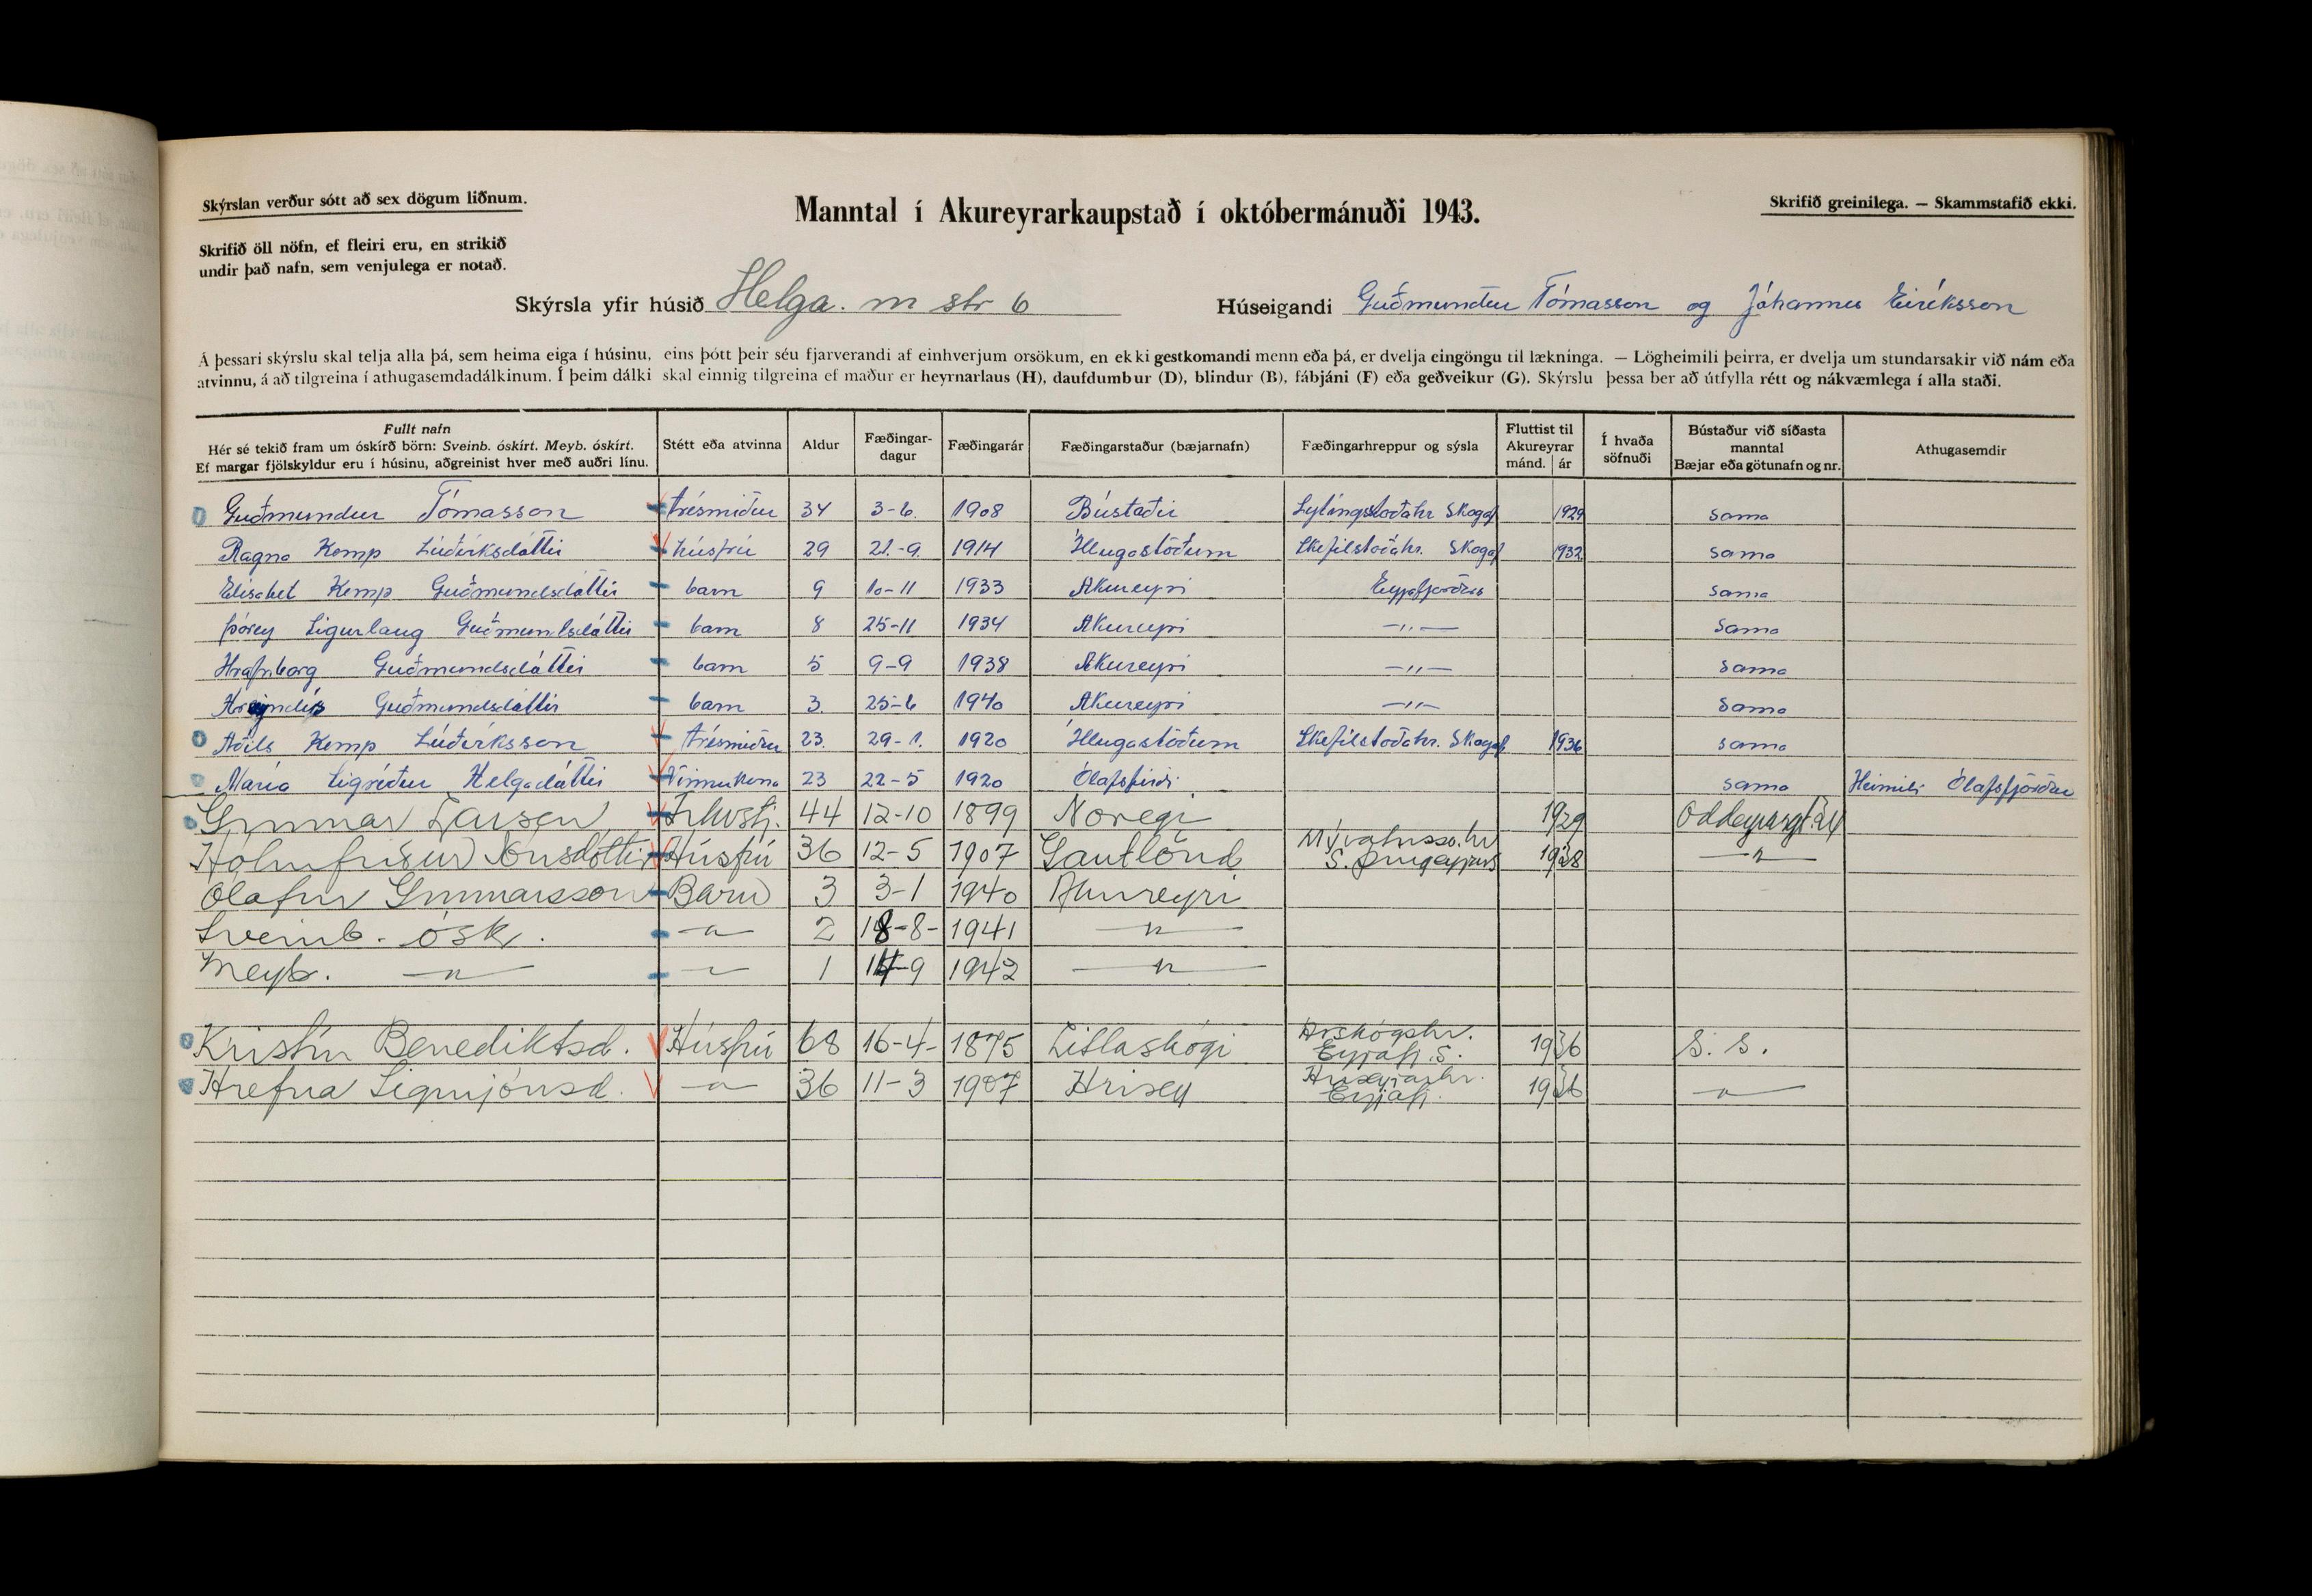 Skýrslan verður sótt að sex dögum liðnum.
Manntal í Akureyrarkaupstað í októbermánuði 1943.
Skrifið greinilega. — Skammstafið ekki.
Skrifið öll nöfn, ef fleiri eru, en strikið
undir það nafn, sem venjulega er notað.
Skýrsla yfir húsið Helga. m str 6
Húseigandi Guðmundur Tómasson og Jóhannes Eiríksson
Á þessari skýrslu skal telja alla þá, sem heima eiga í húsinu, eins þótt þeir séu fjarverandi af einhverjum orsökum, en ekki gestkomandi menn eða þá, er dvelja eingöngu til lækninga. — Lögheimili þeirra, er dvelja um stundarsakir við nám eða
atvinnu, á að tilgreina í athugasemdadálkinum. Í þeim dálki skal einnig tilgreina ef maður er heyrnarlaus (H), daufdumbur (D), blindur (B), fábjáni (F) eða geðveikur (G). Skýrslu þessa ber að útfylla rétt og nákvæmlega í alla staði.
Fullt nafn
Hér sé tekið fram um óskírð börn: Sveinb. óskírt. Meyb. óskírt.
Ef margar fjölskyldur eru í húsinu, aðgreinist hver með auðri línu.
Stétt eða atvinna
Aldur
Fæðingar-
dagur
Fæðingarár
Fæðingarstaður (bæjarnafn)
Fæðingarhreppur og sýsla
Fluttist til
Akureyrar
mánd. ár
Í hvaða
söfnuði
Bústaður við síðasta
manntal
Bæjar eða götunafn og nr.
Athugasemdir
Guðmundur Tómasson trésmiður 34 3-6. 1908 Bústaðir Lýtingsstoðahr Skagaf 1929 sama
Ragna Kemp Lúðvíksdóttir húsfrú 29 21.-9. 1914 Illugastöðum Skefilstoðahr. Skagaf 1932 sama
Elísabet Kemp Guðmundsdóttir barn 9 10-11 1933 Akureyri Eyjafjörður sama
Þórey Sigurlaug Guðmundsdóttir barn 8 25-11 1934 Akureyri —"— sama
Hrafnborg Guðmundsdóttir barn 5 9-9 1938 Akureyri —"— sama
Guðmundsdóttir barn 3. 25-6 1940 Akureyri —"— sama
Aðils Kemp Lúðvíksson trésmiður 23. 29-1. 1920 Illugastöðum Skefilstoðahr. Skagaf 1936 sama
María Sigríður Helgadóttir Vinnukona 23 22-5 1920 Ólafsfirði sama Heimili Ólafsfjörður
Gunnar Larsen 44 12-10 1899 Noregi 1929 Oddeyrargt. 24
Hólmfríður Jónsdóttir Húsfrú 36 12-5 1907 Gautlönd Mývatnssv.hr
S. Þingeyjars 1938 —"—
Ólafur Gunnarsson Barn 3 3-1 1940 Akureyri
Sveinb. ósk. —"— 2 18-8- 1941 —"—
Meyb. —"— —"— 1 14-9 1942 —"—
Kristín Benediktsd. Húsfrú 68 16-4- 1875 Litlaskógi Árskógshr.
Eyjafj.s. 1936 S. S.
Hrefna Sigurjónsd. —"— 36 11-3 1907 Hrísey Hríseyjarhr.
Eyjafj. 1936 —"—